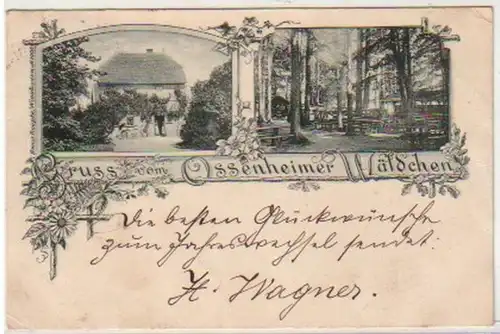 Gruss vom Ossenheimer Wäldchen
Die besten Glückwünsche
zum Jahreswechsel sendet:
H. Wagner.